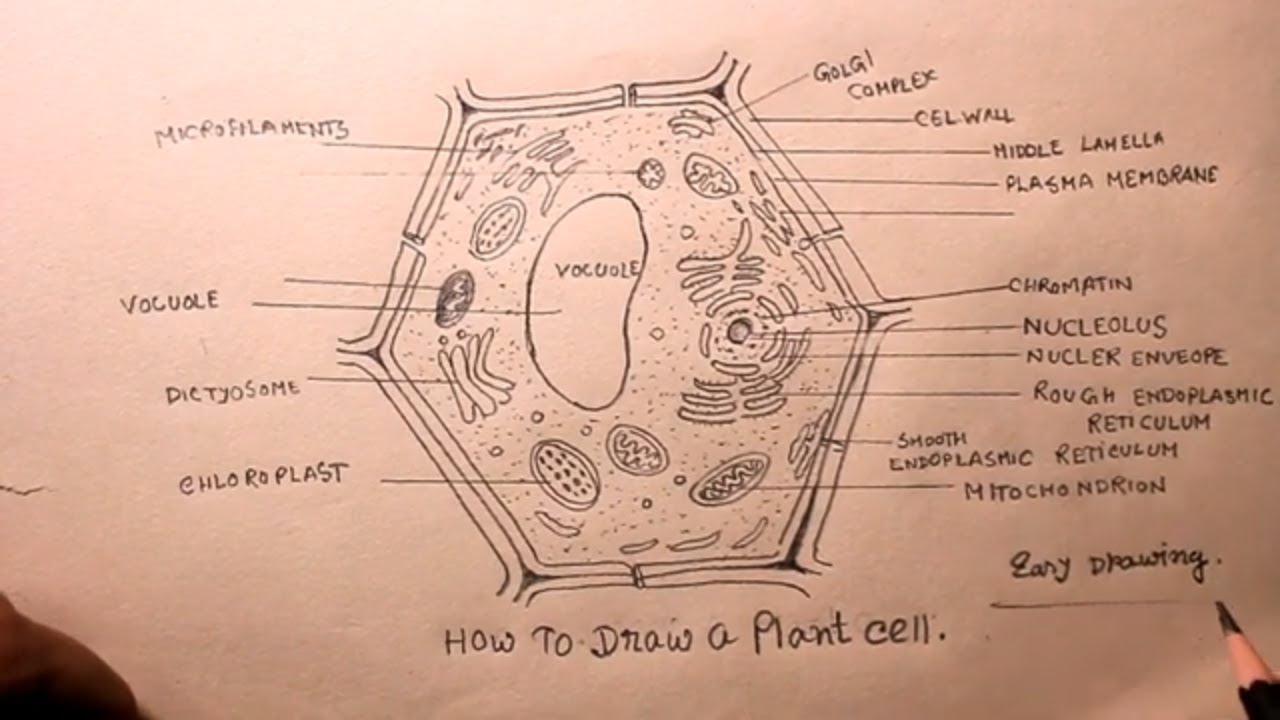 GOLGI
COMPLEX
MICROFILAMENTS
CELWALL
MIDDLE LAMELLA
PLASMA MEMBRANE
VOCUOLE
CHROMATIN
VOCUOLE
NUCLEOLUS
NUCLER ENVEOPE
DICTYOSOME
ROUGH ENDOPLASMIC
RETICULUM
SMOOTH
ENDOPLASMIC RETICULUM
CHLOROPLAST
MITOCHONDRION
Easy Drawing.
How To Draw a Plant cell.